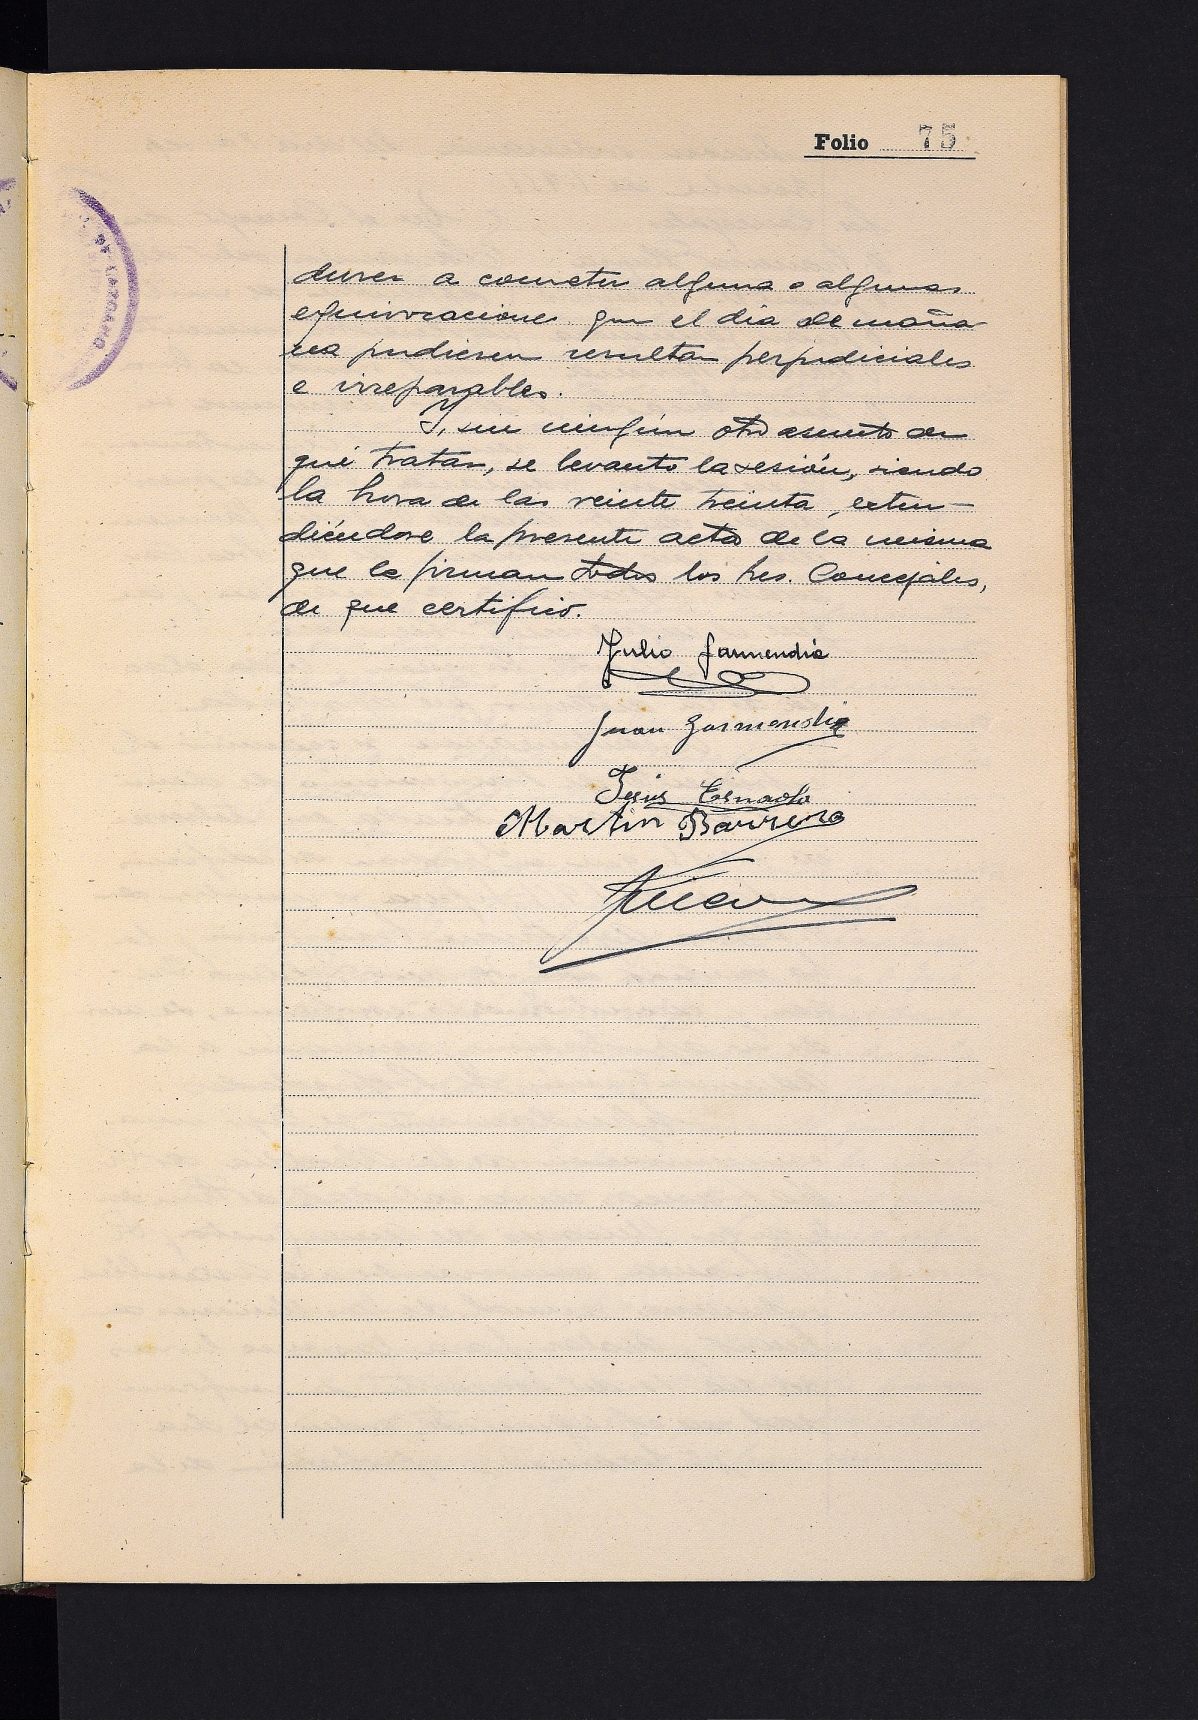 Folio 75
duren a cometer alguna o algunas
equivocacione que el día de maña
na pudiesen resultar perjudiciales
e irreparables.
Y, sin ningún otro asunto de
qué tratar, se levantó la sesión, siendo
la hora de las veinte treinta, exten-
diéndose la presente acta de la misma
que la firman todos los Sres. Concejales,
de que certifico.
Julio Garmendia
Juan Garmendia
Jesús
Martin Barrena